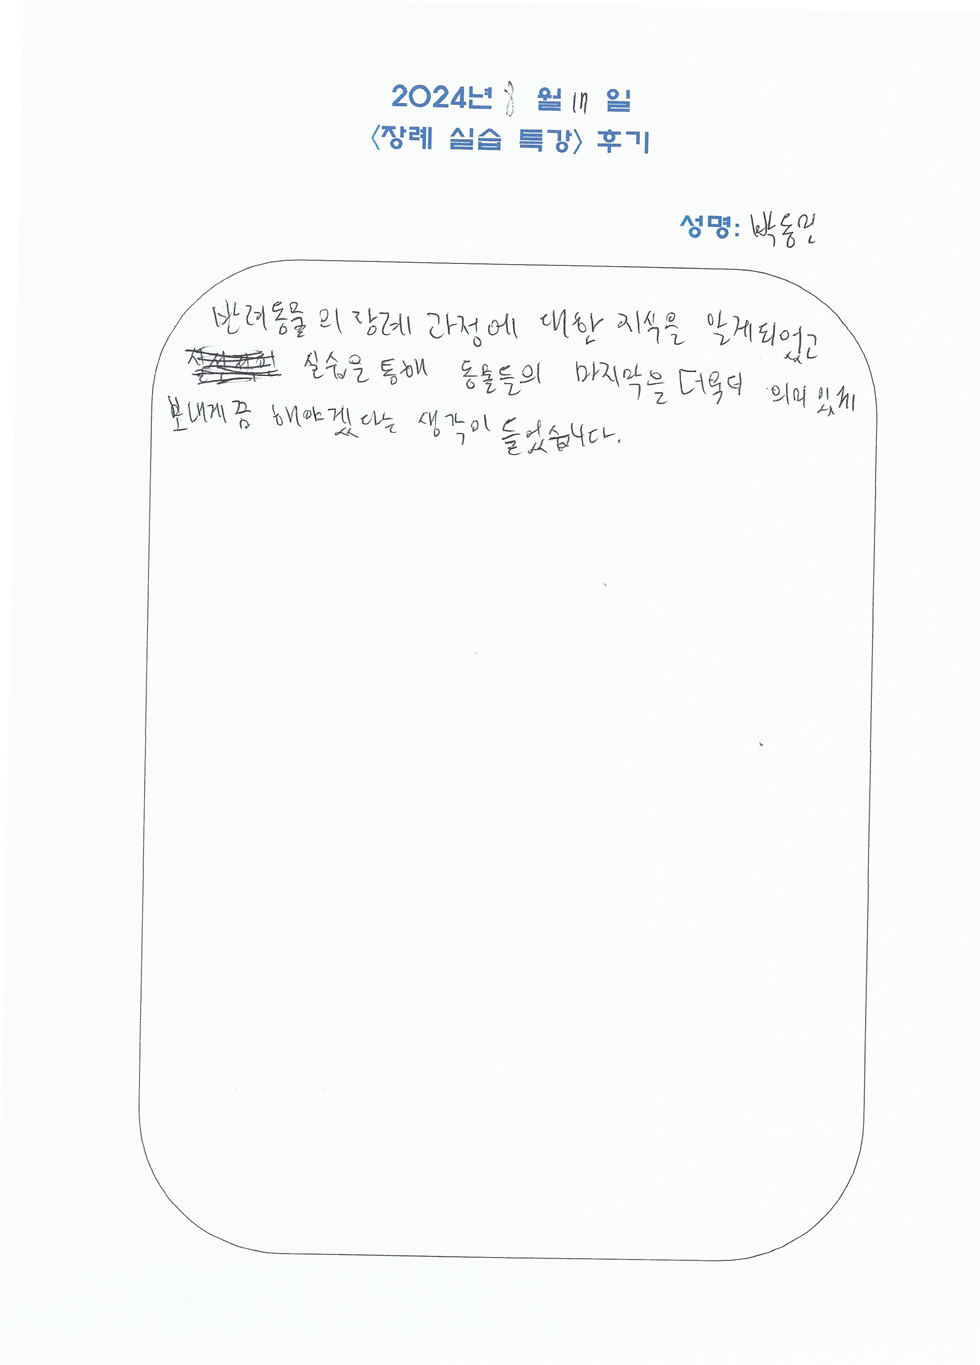 2024년 8 월 17 일
<장례 실습 특강> 후기
성명: 박동민
반려동물의 장례 과정에 대한 지식을 알게되었고
실습을 통해 동물들의 마지막을 더욱더 의미 있게
보내게끔 해야겠다는 생각이 들었습니다.